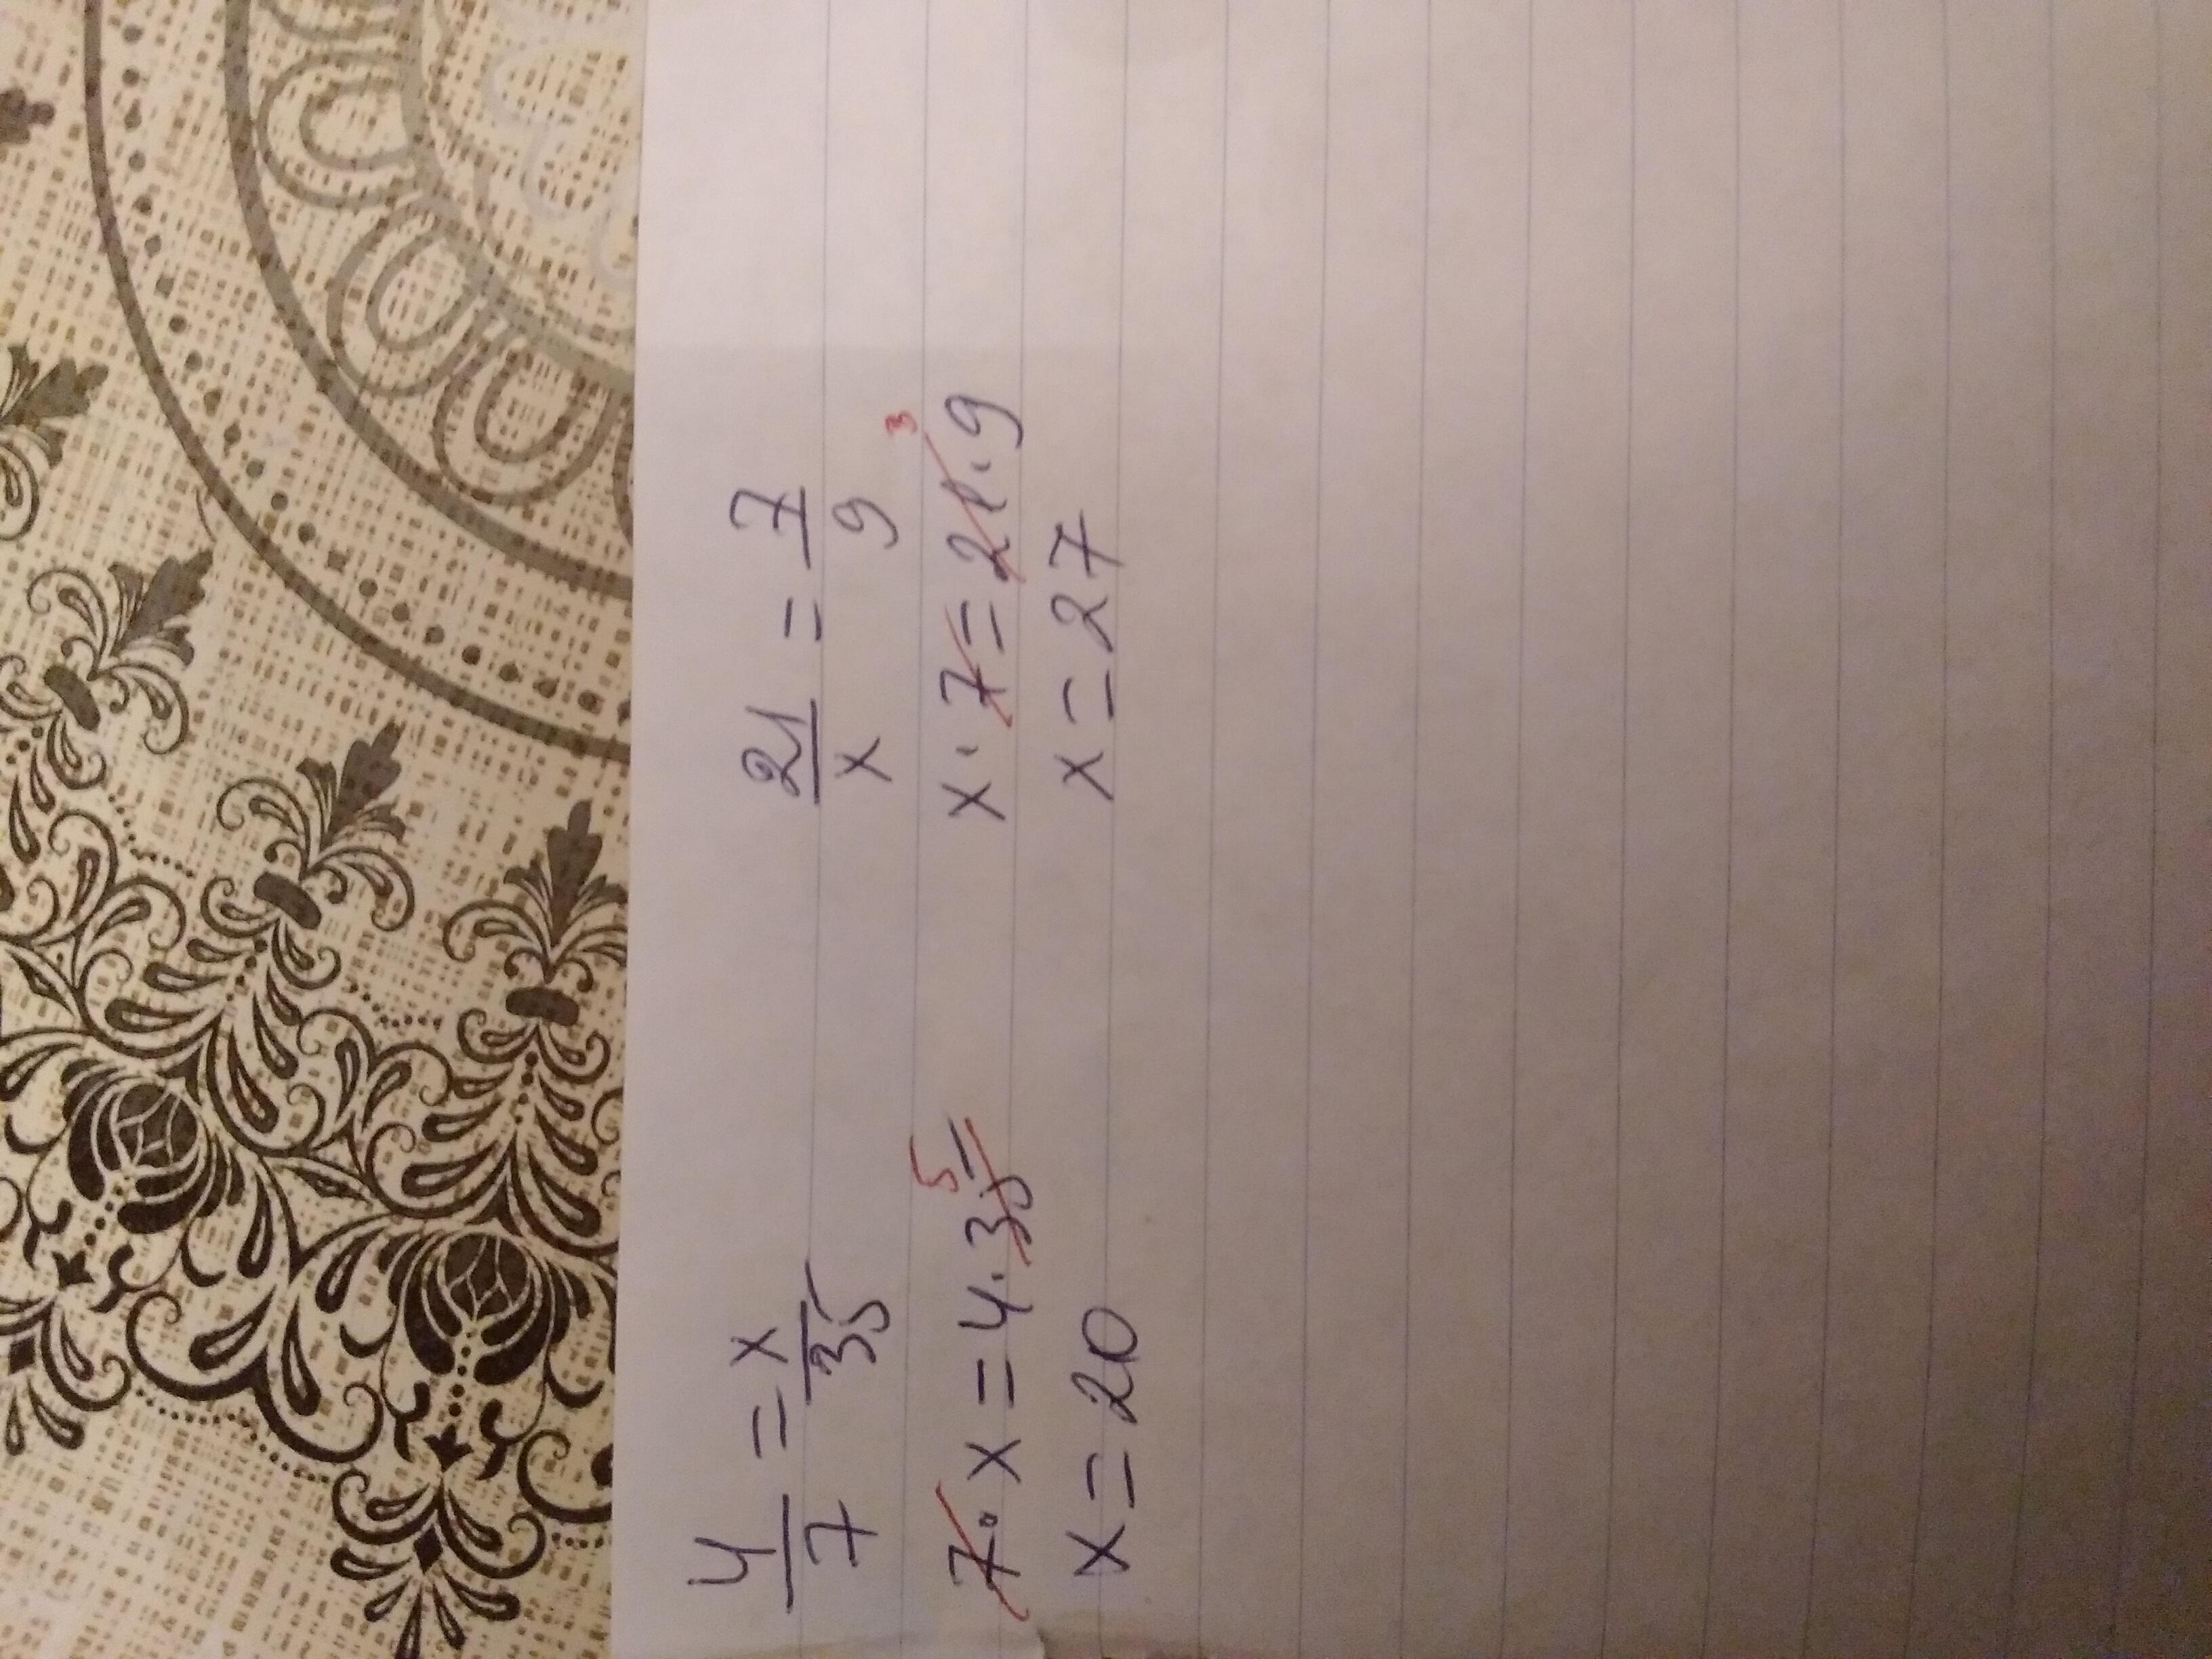 4/7 = x/35
7 · x = 4 · 35 5
x = 20
21/x = 7/9
x · 7 = 21 · 9 3
x = 27